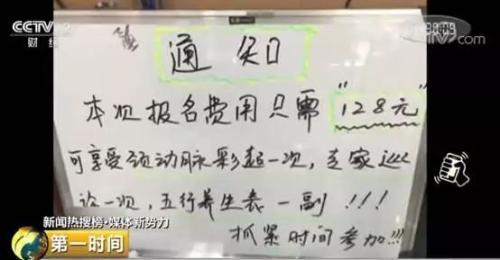 CCTV 2
财经
CCTV.com
通知
本次报名费用只需“128元”
可享受颈动脉彩超一次，专家巡
诊一次，五行养生表一副!!!
抓紧时间参加!!!
新闻热搜榜·媒体新势力
第一时间